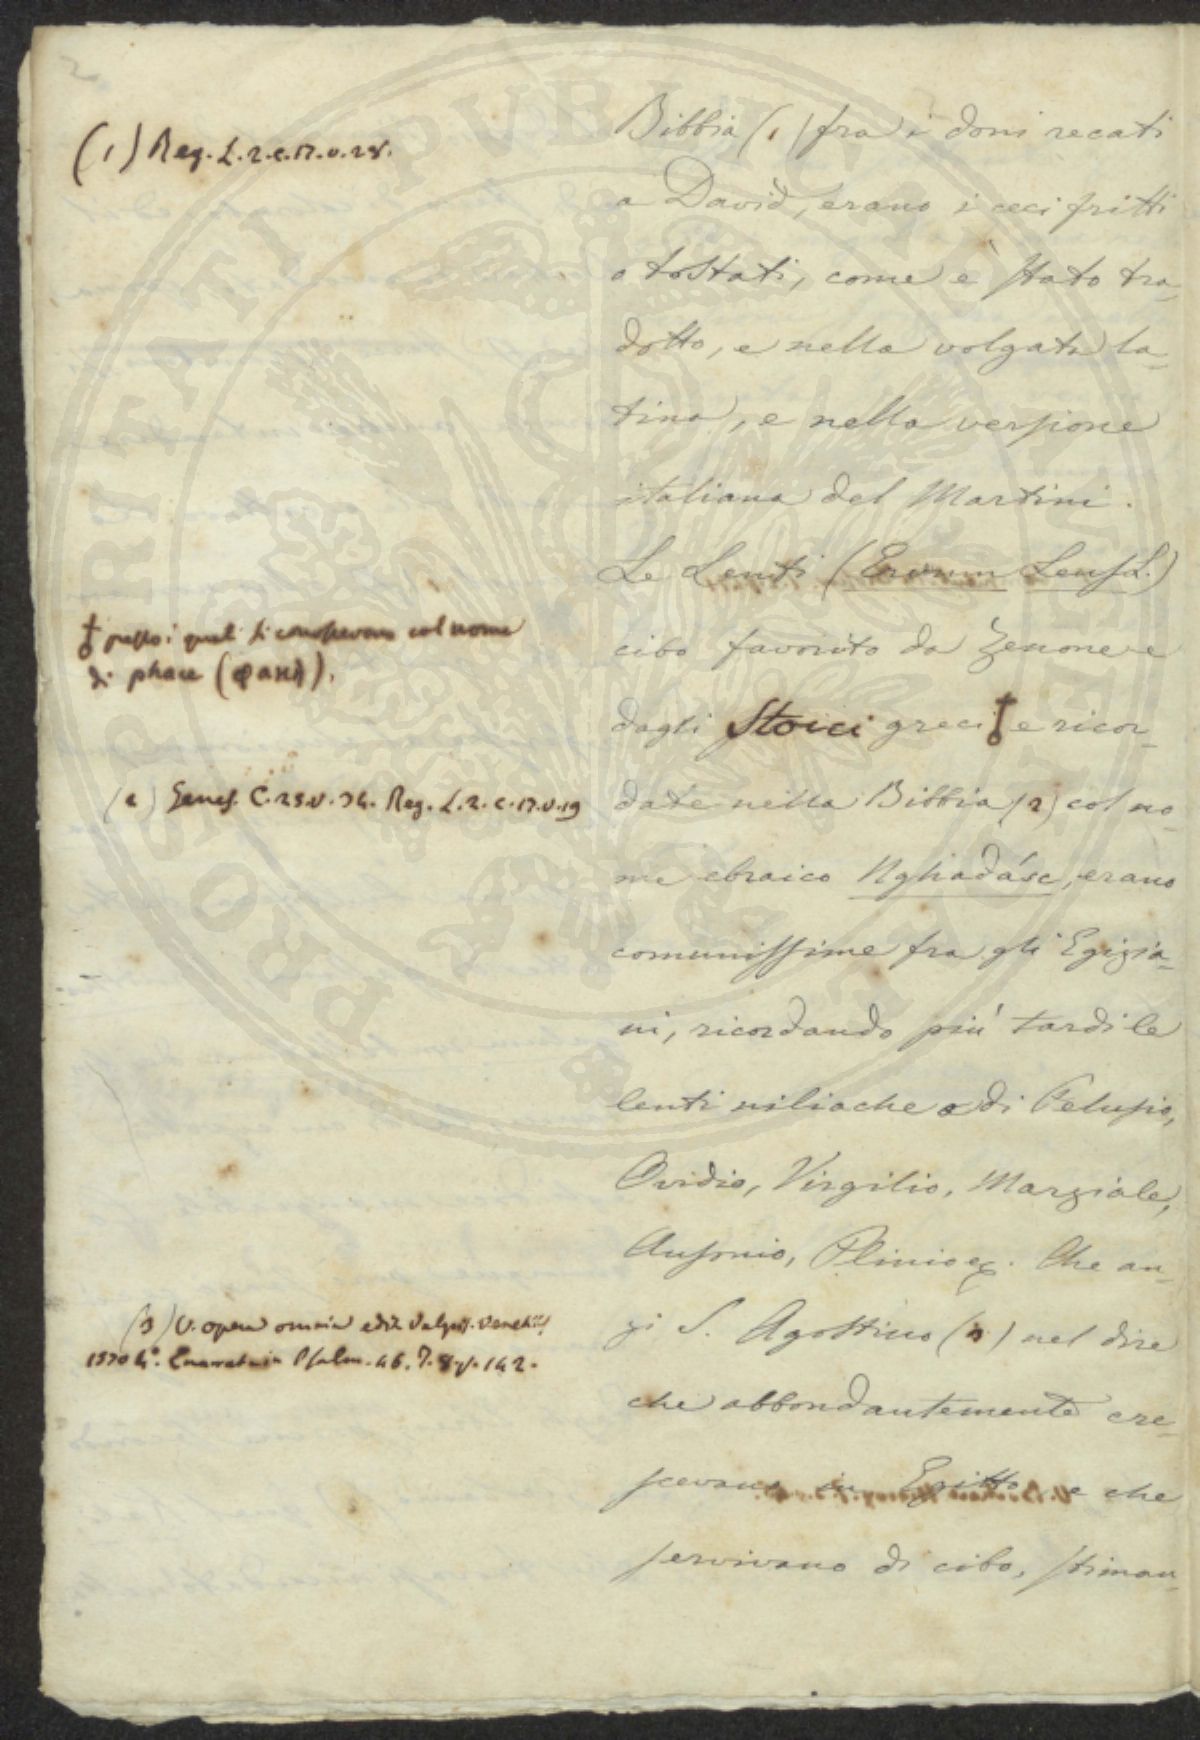 Bibbia (1) fra i doni recati
a David, erano i ceci fritti
o tostati, come è stato tra-
dotto, e nella volgata la-
tina, e nella versione
italiana del Martini.
Le Lenti (Ervum Lens L.)
cibo favorito da Zenone e
dagli Stoici greci e ricor-
date nella Bibbia (2) col no-
me ebraico Nghadásc, erano
comunissime fra gli Egizia-
ni, ricordando più tardi le
lenti niliache o di Pelusio,
Ovidio, Virgilio, Marziale,
Ausonio, Plinio ec. Che an-
zi S. Agostino (3) nel dire
che abbondantemente cre-
scevano in Egitto e che
servivano di cibo, stiman-
(1) Reg. L. 2. c. 17. v. 28.
presso i quali si conoscevano col nome
di phace (φακῆ).
(2) Genes. C. 25. v. 34. Reg. L. 2. c. 17. v. 19
(3) V. opera omnia edit. Valgris. Venetiis
1570 4°. Enarrat. in Psalm. 46. T. 8. p. 142.
PROSPERITATI PVBLICAE